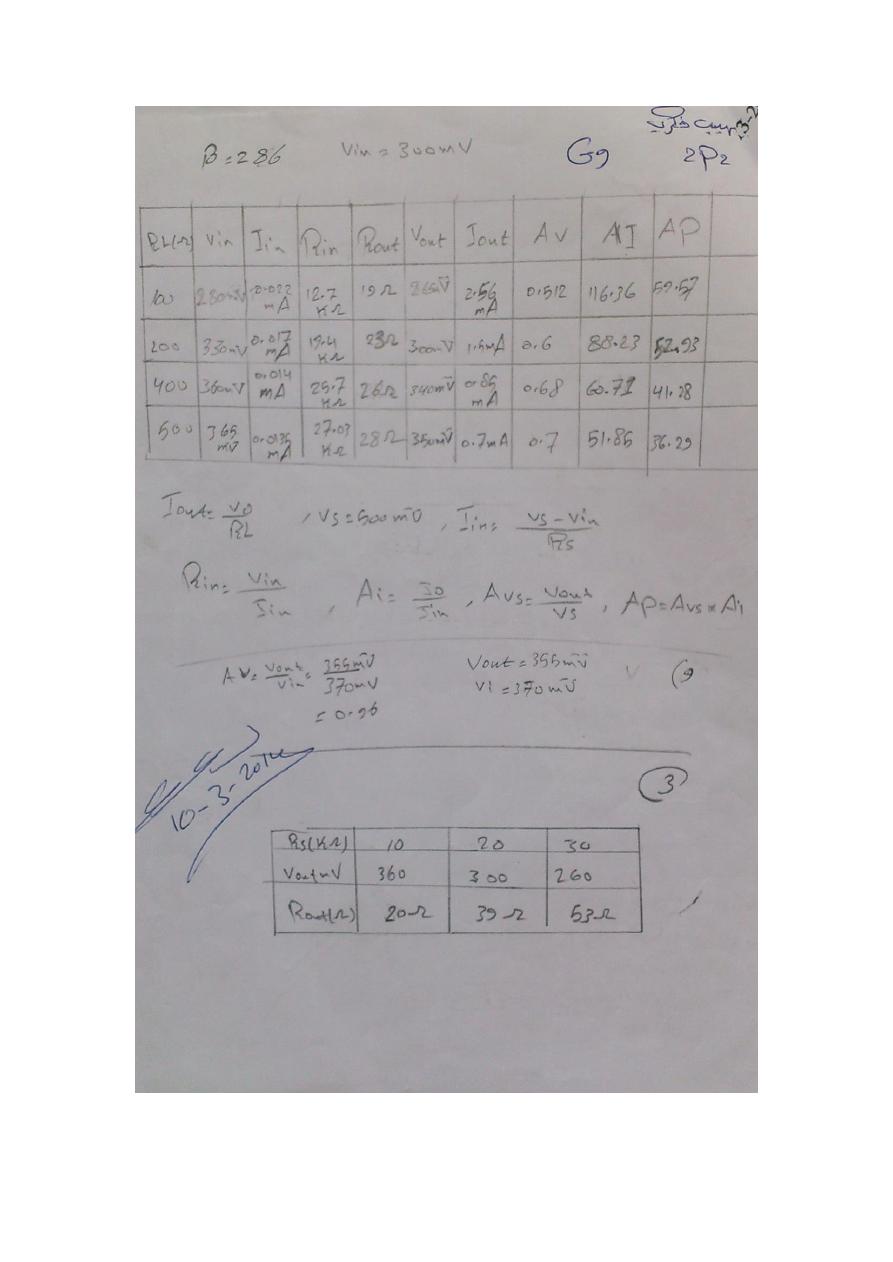 3-2
B=286 Vin=300mV G9 2P2
RL(Ω) Vin Iin Rin Rout Vout Iout AV AI AP
100 280mV 0.022 mA 12.7 KΩ 19Ω 2.56 mA 0.512 116.36 59.57
200 330mV 0.017 mA 19.4 KΩ 23Ω 300mV 1.5mA 0.6 88.23 52.93
400 360mV 0.014 mA 25.7 KΩ 26Ω 340mV 0.85 mA 0.68 60.71 41.28
500 365 mV 0.0135 mA 27.03 KΩ 28Ω 350mV 0.7mA 0.7 51.85 36.29
Iout=Vo/RL , Vs=500mV , Iin= Vs-Vin/Rs
Rin=Vin/Iin , Ai=Io/Iin , Avs=Vout/Vs , Ap=Avs*Ai
AV=Vout/Vin=355mV/370mV Vout=355mV
=0.96 Vi=370mV
10-3-2014
3
Rs(KΩ) 10 20 30
VoutmV 360 300 260
Rout(Ω) 20Ω 39Ω 53Ω